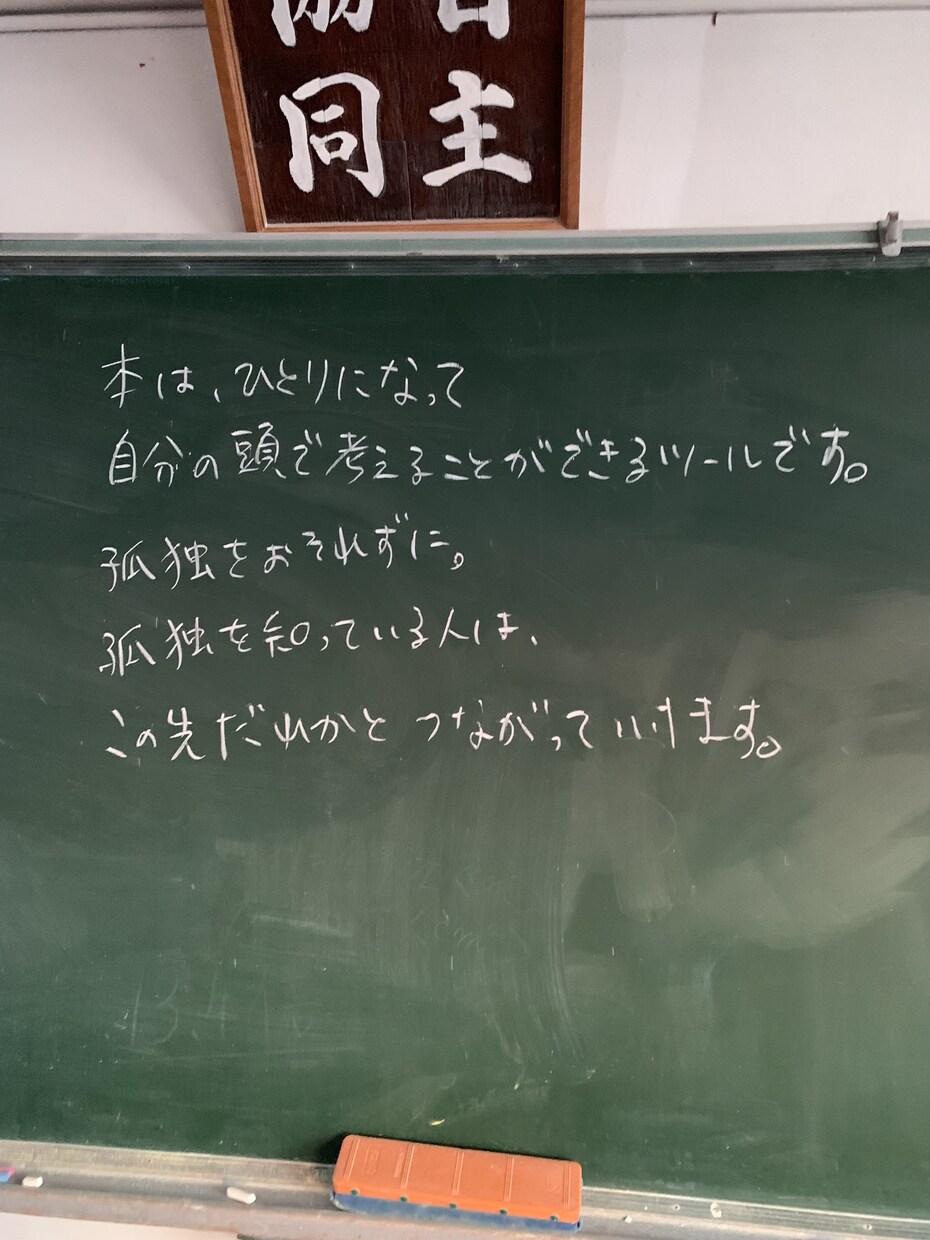 自主
協同
本は、ひとりになって
自分の頭で考えることができるツールです。
孤独をおそれずに。
孤独を知っている人は、
この先だれかとつながっていけます。